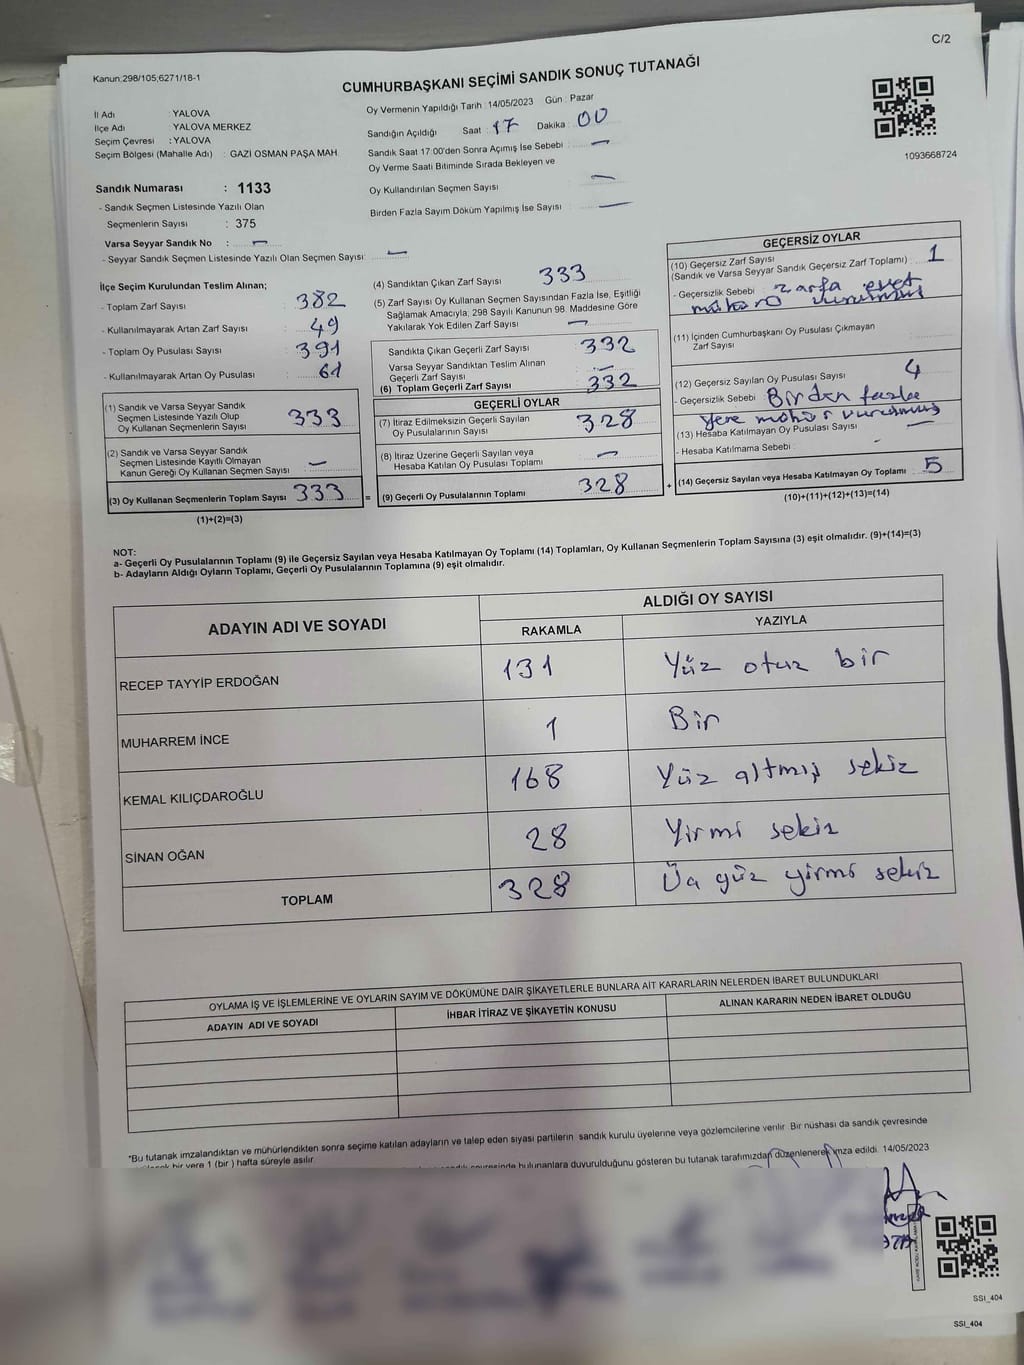 C/2
Kanun:298/105;6271/18-1
CUMHURBAŞKANI SEÇİMİ SANDIK SONUÇ TUTANAĞI
İl Adı : YALOVA
İlçe Adı YALOVA MERKEZ
Seçim Çevresi : YALOVA
Seçim Bölgesi (Mahalle Adı) : GAZİ OSMAN PAŞA MAH.
Sandık Numarası : 1133
- Sandık Seçmen Listesinde Yazılı Olan
Seçmenlerin Sayısı : 375
Varsa Seyyar Sandık No : —
- Seyyar Sandık Seçmen Listesinde Yazılı Olan Seçmen Sayısı: —
Oy Vermenin Yapıldığı Tarih : 14/05/2023 Gün : Pazar
Sandığın Açıldığı Saat : 17 Dakika : 00
Sandık Saat 17:00'den Sonra Açımış İse Sebebi : —
Oy Verme Saati Bitiminde Sırada Bekleyen ve
Oy Kullandırılan Seçmen Sayısı —
Birden Fazla Sayım Döküm Yapılmış İse Sayısı : —
1093668724
İlçe Seçim Kurulundan Teslim Alınan;
- Toplam Zarf Sayısı : 382
- Kullanılmayarak Artan Zarf Sayısı : 49
- Toplam Oy Pusulası Sayısı : 391
- Kullanılmayarak Artan Oy Pusulası : 61
(1) Sandık ve Varsa Seyyar Sandık
Seçmen Listesinde Yazılı Olup
Oy Kullanan Seçmenlerin Sayısı : 333
(2) Sandık ve Varsa Seyyar Sandık
Seçmen Listesinde Kayıtlı Olmayan
Kanun Gereği Oy Kullanan Seçmen Sayısı : —
(3) Oy Kullanan Seçmenlerin Toplam Sayısı : 333
(1)+(2)=(3)
(4) Sandıktan Çıkan Zarf Sayısı : 333
(5) Zarf Sayısı Oy Kullanan Seçmen Sayısından Fazla İse, Eşitliği
Sağlamak Amacıyla; 298 Sayılı Kanunun 98. Maddesine Göre
Yakılarak Yok Edilen Zarf Sayısı : —
Sandıkta Çıkan Geçerli Zarf Sayısı : 332
Varsa Seyyar Sandıktan Teslim Alınan
Geçerli Zarf Sayısı : —
(6) Toplam Geçerli Zarf Sayısı : 332
GEÇERLİ OYLAR
(7) İtiraz Edilmeksizin Geçerli Sayılan
Oy Pusulalarının Sayısı : 328
(8) İtiraz Üzerine Geçerli Sayılan veya
Hesaba Katılan Oy Pusulası Toplamı : —
= (9) Geçerli Oy Pusulalarının Toplamı : 328
GEÇERSİZ OYLAR
(10) Geçersiz Zarf Sayısı
(Sandık ve Varsa Seyyar Sandık Geçersiz Zarf Toplamı) : 1
- Geçersizlik Sebebi : zarfa evet
(11) İçinden Cumhurbaşkanı Oy Pusulası Çıkmayan
Zarf Sayısı :
(12) Geçersiz Sayılan Oy Pusulası Sayısı : 4
- Geçersizlik Sebebi Birden fazla
yere mühür vurulmuş
(13) Hesaba Katılmayan Oy Pusulası Sayısı : —
- Hesaba Katılmama Sebebi :
+ (14) Geçersiz Sayılan veya Hesaba Katılmayan Oy Toplamı : 5
(10)+(11)+(12)+(13)=(14)
NOT:
a- Geçerli Oy Pusulalarının Toplamı (9) ile Geçersiz Sayılan veya Hesaba Katılmayan Oy Toplamı (14) Toplamları, Oy Kullanan Seçmenlerin Toplam Sayısına (3) eşit olmalıdır. (9)+(14)=(3)
b- Adayların Aldığı Oyların Toplamı, Geçerli Oy Pusulalarının Toplamına (9) eşit olmalıdır.
ADAYIN ADI VE SOYADI ALDIĞI OY SAYISI
RAKAMLA YAZIYLA
RECEP TAYYİP ERDOĞAN 131 Yüz otuz bir
MUHARREM İNCE 1 Bir
KEMAL KILIÇDAROĞLU 168 Yüz altmış sekiz
SİNAN OĞAN 28 Yirmi sekiz
TOPLAM 328 Üç yüz yirmi sekiz
OYLAMA İŞ VE İŞLEMLERİNE VE OYLARIN SAYIM VE DÖKÜMÜNE DAİR ŞİKAYETLERLE BUNLARA AİT KARARLARIN NELERDEN İBARET BULUNDUKLARI
ADAYIN ADI VE SOYADI İHBAR İTİRAZ VE ŞİKAYETİN KONUSU ALINAN KARARIN NEDEN İBARET OLDUĞU
*Bu tutanak imzalandıktan ve mühürlendikten sonra seçime katılan adayların ve talep eden siyasi partilerin sandık kurulu üyelerine veya gözlemcilerine verilir. Bir nüshası da sandık çevresinde
bir yere 1 (bir ) hafta süreyle asılır.
bulunanlara duyurulduğunu gösteren bu tutanak tarafımızdan düzenlenerek imza edildi. 14/05/2023
SSI_404
SSI_404